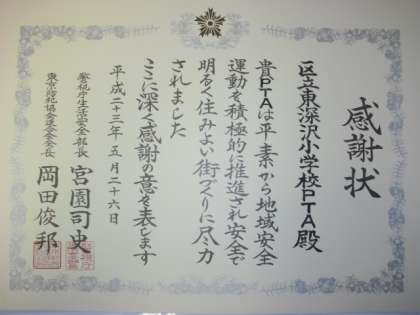 感謝状
区立東深沢小学校PTA殿
貴PTAは平素から地域安全
運動を積極的に推進され安全で
明るく住みよい街づくりに尽力
されました
ここに深く感謝の意を表します
平成二十三年五月二十六日
警視庁生活安全部長 宮園司史
東京防犯協会連合会会長 岡田俊邦